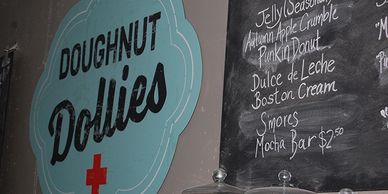 DOUGHNUT
Dollies
Jelly (Seasonal
Autumn Apple Crumble
Punkin Donut
Dulce de Leche
Boston Cream
S'mores
Mocha Bar $2.50